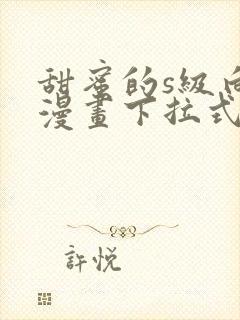 甜蜜的s級向
漫畫下拉式
許悅